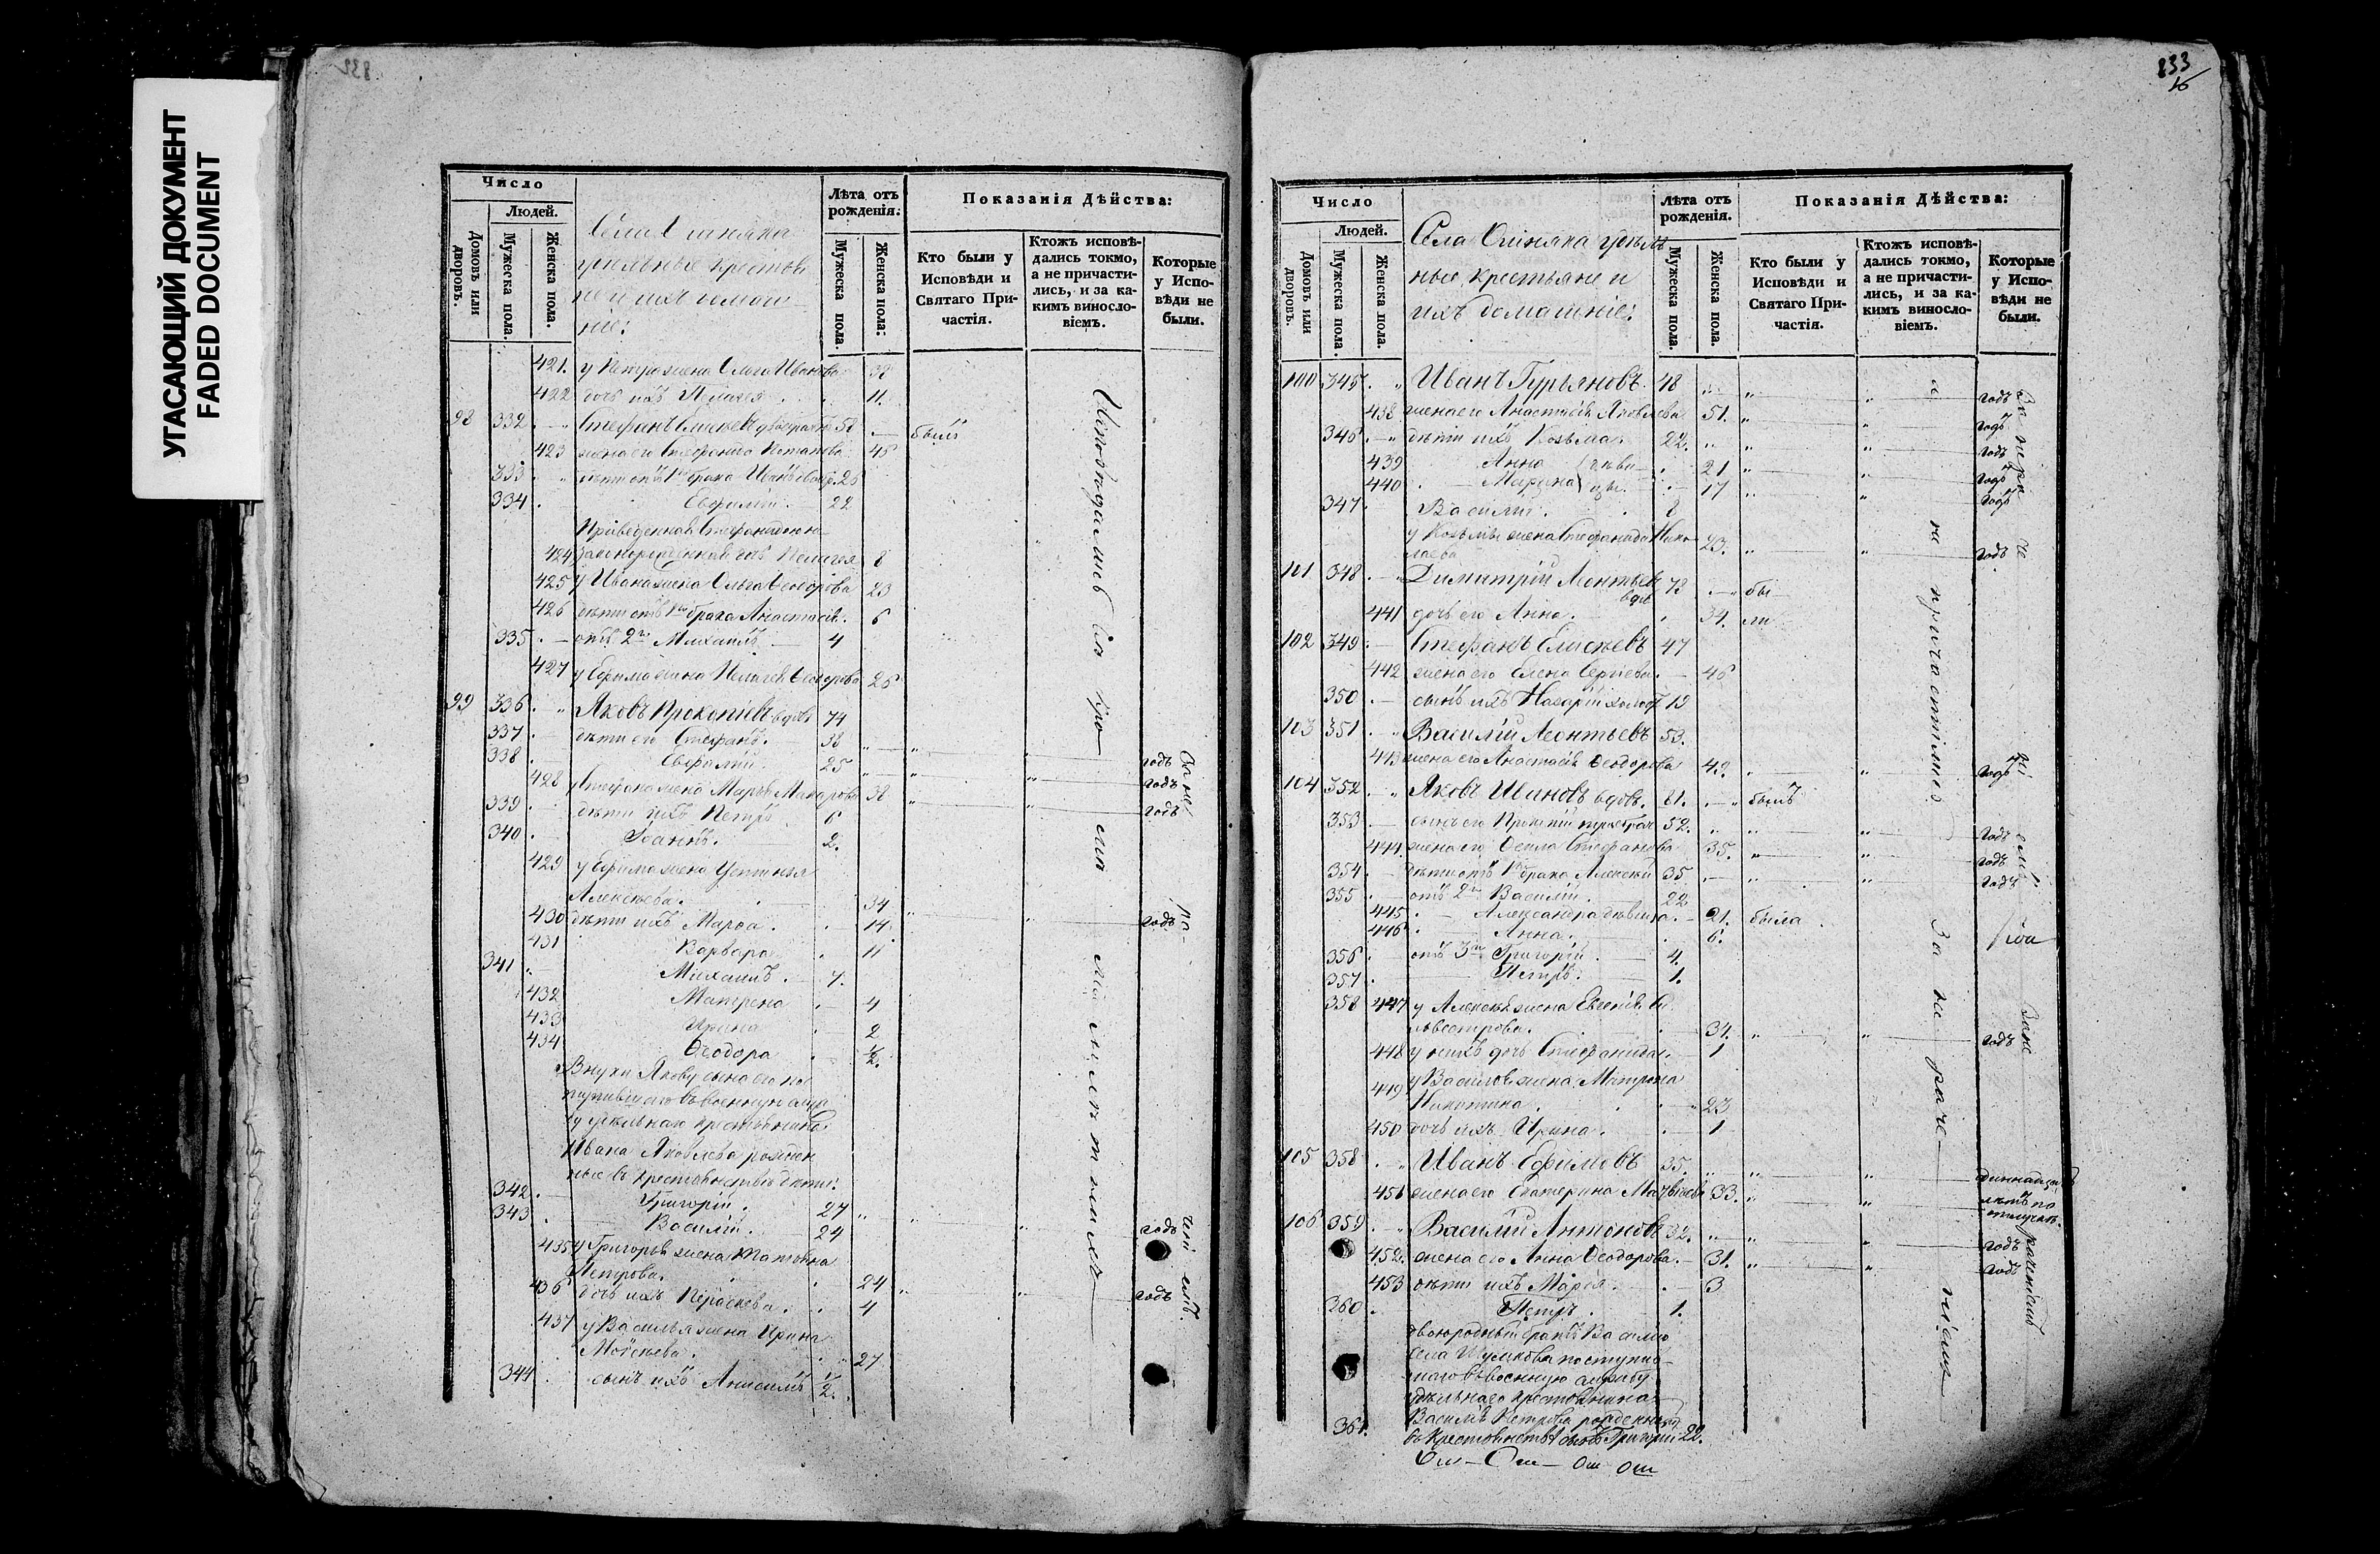 УГАСАЮЩИЙ ДОКУМЕНТ
FADED DOCUMENT
832
Число
Людей.
Домовъ или дворовъ.
Мужеска пола.
Женска пола.
удѣльные крестья
не и ихъ домаш
ніе:
Лѣта отъ рожденія:
Мужеска пола.
Женска пола:
Показанія Дѣйства:
Кто были у Исповѣди и Святаго Причастія.
Ктожъ исповѣдались токмо, а не причастились, и за какимъ винословіемъ.
Которые у Исповѣди не были.
421. у Петра жена Ольга Иванова 38
422 дочь ихъ Пелагея 11.
98 332 Стефанъ Елисѣевъ двоебрач. 58 былъ
423 жена его Стефанида Потапова 45
333 дѣти отъ 1го брака Иванъ 26
334 Евфимій 22
Приведенная Стефанидою не
424 законорожденная дочь Пелагея 8
425 у Ивана жена Ольга Ѳеодорова 23
426 дѣти отъ 1го брака Анастасія 6
335 отъ 2го Михаилъ 4
427 у Ефима жена Пелагея Ѳеодорова 26
99 336 Яковъ Прокопіевъ вдовъ 74
337 дѣти его Стефанъ. 38 годъ
338 Евфимій 25 годъ
428 у Стефана жена Марья Макарова 38 годъ
339 дѣти ихъ Петръ 6
340 Іоаннъ. 2.
429 у Ефима жена Устинія
Алексѣева. 34 годъ
430 дѣти ихъ Марѳа. 14
431 Варвара 11
341 Михаилъ. 7.
432 Матрена 4
433 Ирина 2
434 Ѳеодора 1/2.
Внуки Якову сына его по
ступившаго въ военную служ
бу удѣльнаго крестьянина
Ивана Яковлева рожден
ные въ крестьянствѣ дѣти:
342 Григорій. 27 годъ
343 Василій. 24
435 у Григорья жена Татьяна
Петрова. 24 годъ
436 дочь ихъ Параскева. 4
437 у Василья жена Ирина
Моѵсеева. 27
344 сынъ ихъ Анисимъ 1/2.
833
Число
Людей.
Домовъ или дворовъ.
Мужеска пола.
Женска пола.
Села удѣль
ные крестьяне и
ихъ домашніе:
Лѣта отъ рожденія.
Мужеска пола.
Женска пола.
Показанія Дѣйства:
Кто были у Исповѣди и Святаго Причастія.
Ктожъ исповѣдались токмо, а не причастились, и за какимъ винословіемъ.
Которые у Исповѣди не были.
100 345 Иванъ Гурьяновъ. 48 годъ
438 жена его Анастасія Яковлева 51. годъ
346 дѣти ихъ Козьма. 22. годъ
439 Анна 21 годъ
440 Марина 17 годъ
дѣвицы
347 Василій. 8
у Козьмы жена Стефанида Нико
лаева 23. годъ
101 348 Димитрій Леонтьевъ вдов. 73 бы
441 дочь его Анна. 34. ли
102 349 Стефанъ Елисѣевъ 47
442 жена его Елена Сергіева. 46
350 сынъ ихъ Назарій холост 19
103 351 Василій Леонтьевъ 53.
443 жена его Анастасія Ѳеодорова 42. годъ
104 352 Яковъ Ивановъ вдовъ. 81. былъ
353 сынъ его 52. годъ
444 жена его Ѳекла Стефанова 35. годъ
354 дѣти отъ 1го брака Алексѣй 35 годъ
355 отъ 2го Василій. 22
445 Александра дѣвица. 21. была
446 Анна. 6.
356 отъ 3го Григорій 4.
357 Петръ. 1.
358 447 у Алексѣя жена Евгенія Си
львестрова. 34. годъ
448 у нихъ дочь Стефанида. 1
449 у Василья жена Матрона
Никитина. 23
450 дочь ихъ Ирина. 1
105 358 Иванъ Ефимовъ 35.
451 жена его Екатерина Матвѣева 33.
106 359 Василій Антоновъ 32. годъ
452. жена его Анна Ѳеодорова. 31. годъ
453 дѣти ихъ Марія. 3
360 Петръ. 1.
двоюродный братъ Василію
села поступив
шаго въ военную службу
удѣльнаго крестьянина
Василія Петрова рожденный
361. въ крестьянствѣ сынъ Григорій 22.